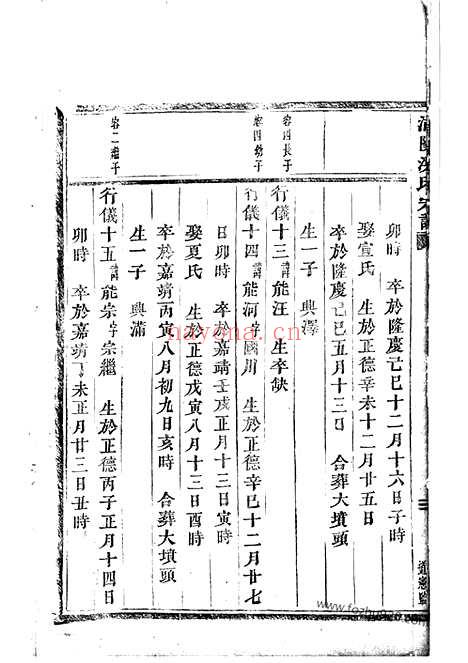 卯時 卒於隆慶己巳十二月十六日子時
娶宣氏 生於正德辛未十二月廿五日
卒於隆慶己巳五月十三日 合葬大墳頭
生一子 興澤
容四長子
行儀十三諱能汪 生卒缺
容四幼子
行儀十四諱能河字國川 生於正德辛巳十二月廿七
日卯時 卒於嘉靖壬戌正月十三日寅時
娶夏氏 生於正德戊寅八月十三日酉時
卒於嘉靖丙寅八月初九日亥時 合葬大墳頭
生一子 興滿
容二繼子
行儀十五諱能宗字宗繼 生於正德丙子正月十四日
卯時 卒於嘉靖丁未正月廿三日丑時
nayona.cn
www.fozhuan